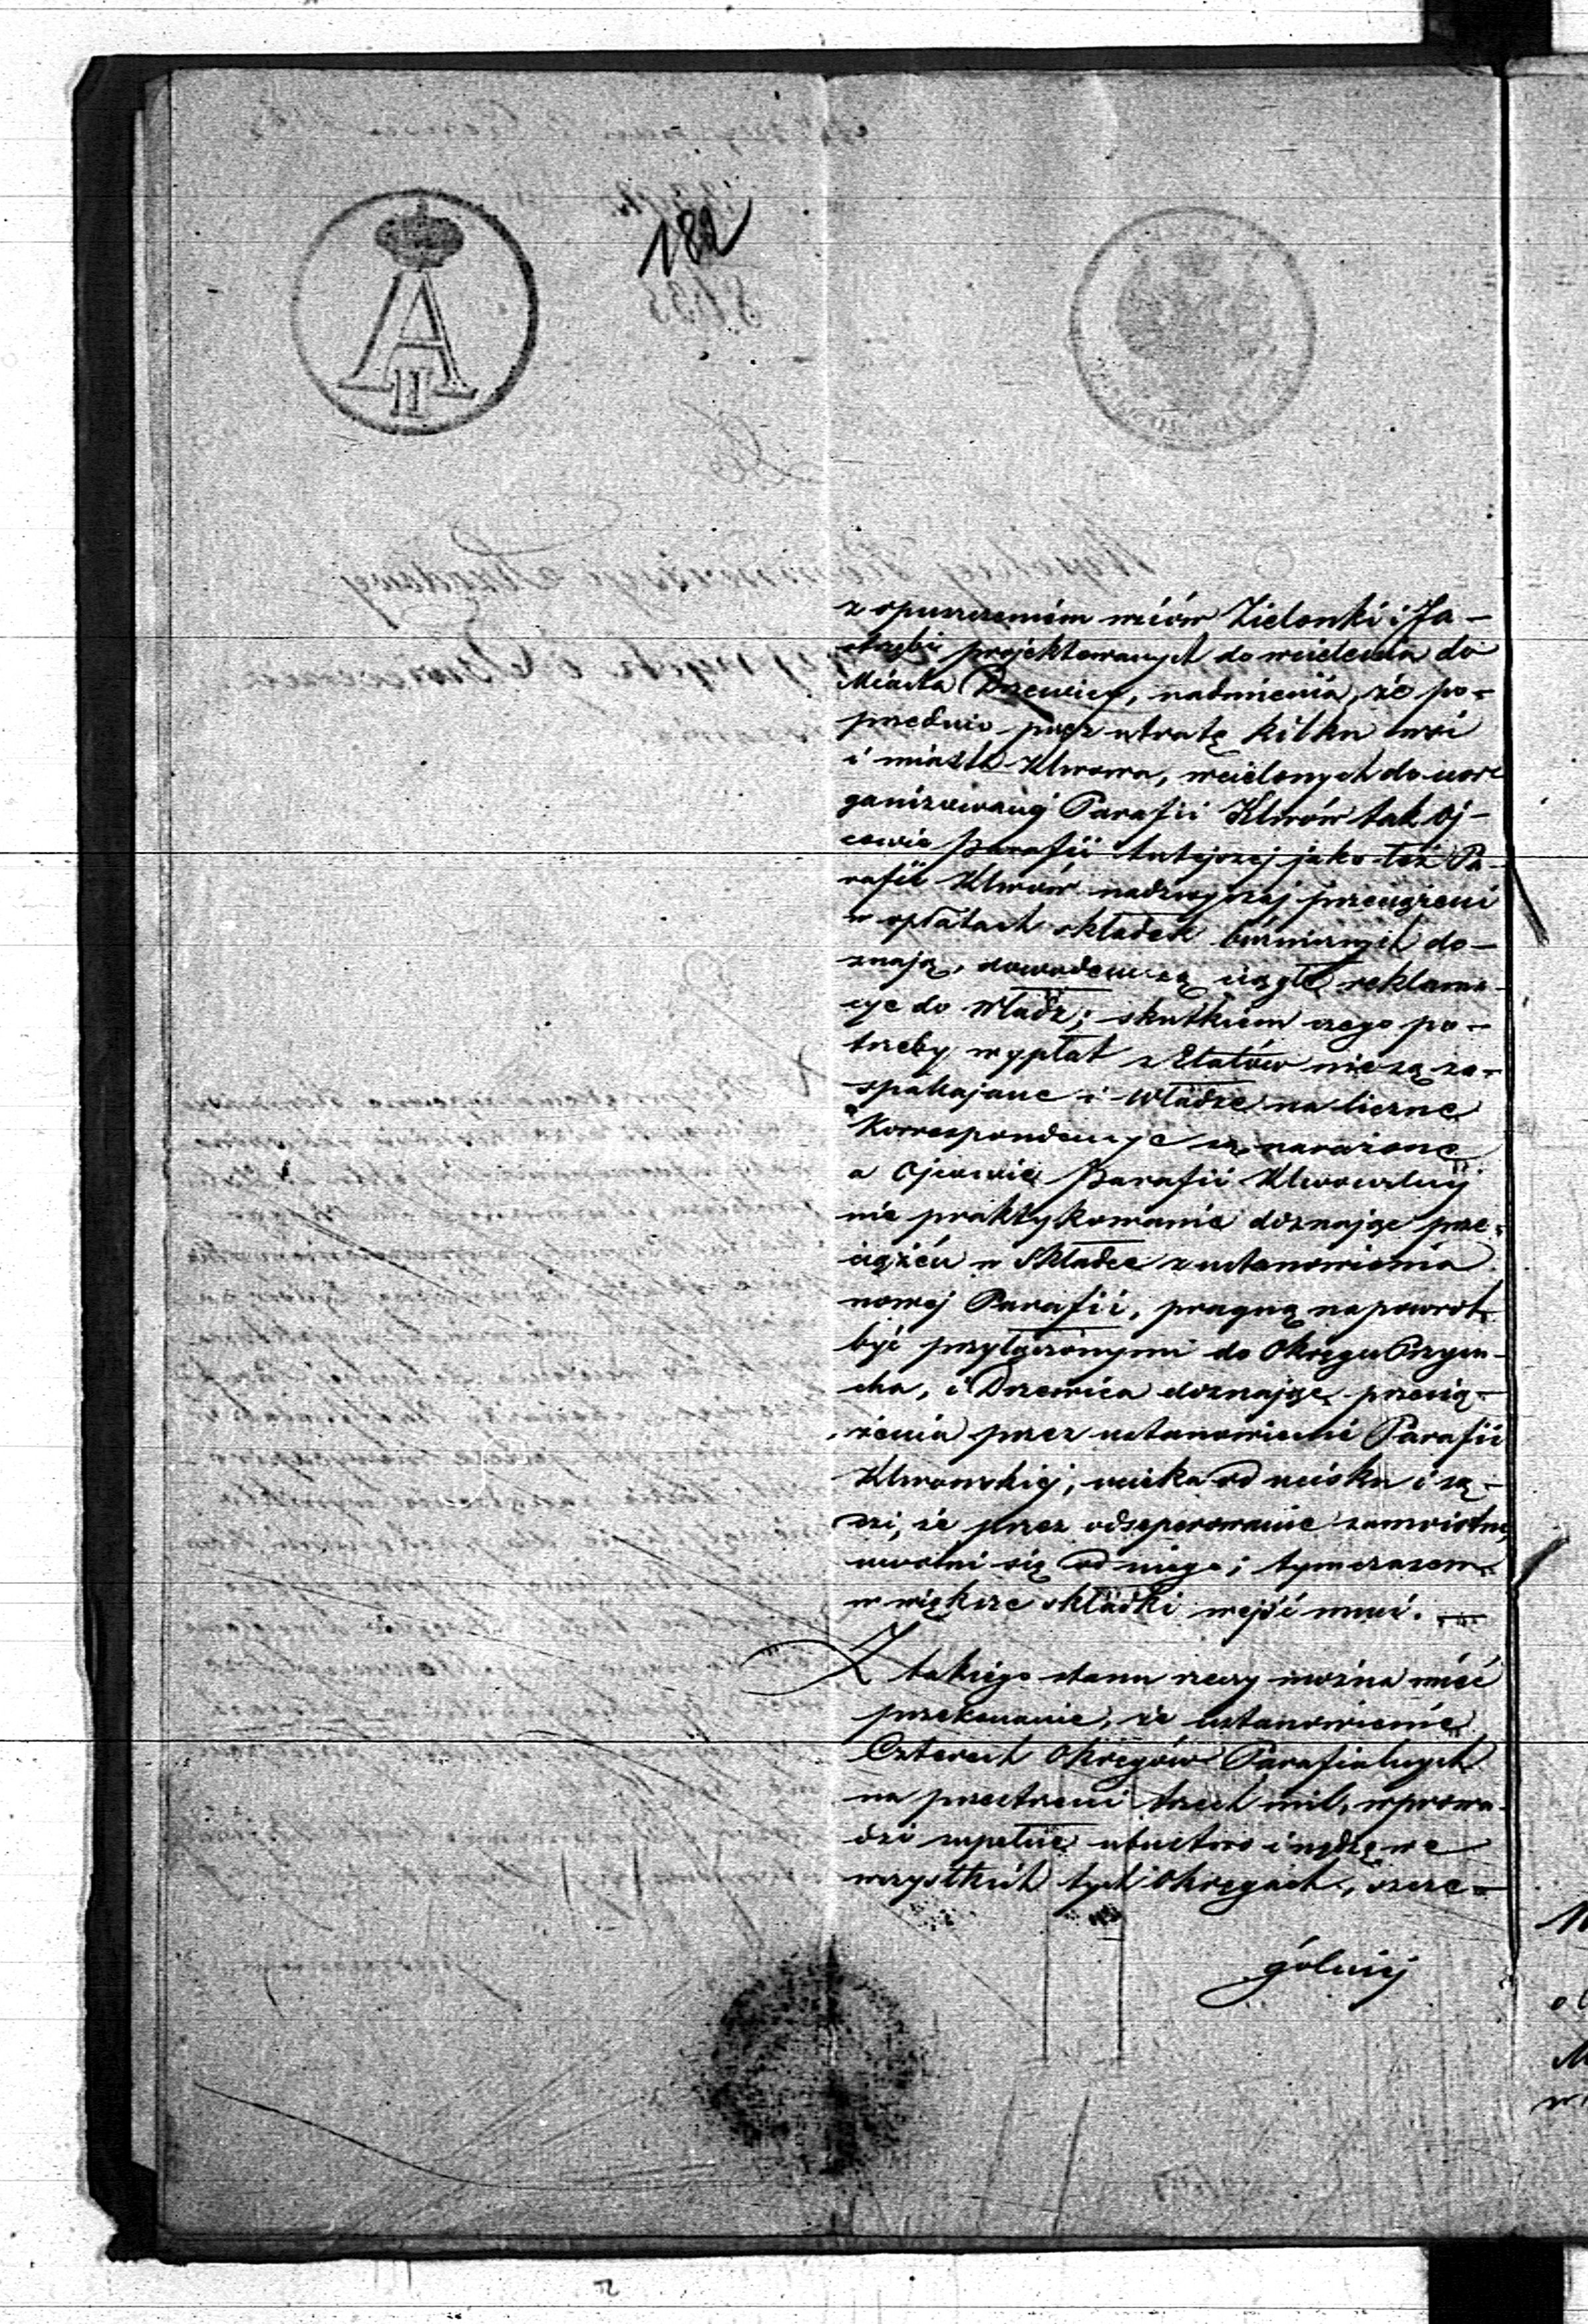 182
A
II
z opuszczeniem wsiów Zielonki i Ja-
strzębi projektowanych do wcielenia do
Miasta Drzewicy, nadmienia, że po-
przednio przez utratę kilku wsi
i miasta Klwowa, wcielonych do uor-
ganizowanej Parafii Klwów tak Oj-
cowie Parafii tutejszej jako też Pa-
rafii Klwów nadzwyczaj przeciążeni
w opłatach składek bóżniczych do-
znają, dowodem są ciągłe reklama-
cye do Władz; skutkiem czego po-
trzeby wypłat z Etatów nie są za-
spakajane i Władze na liczne
Korrespondencye są narażone
a Ojcowie Parafii Klwowskiej
nie praktykowanie doznając prze-
ciążeń w Składce z ustanowienia
nowej Parafii, pragną napowrót
być przyłączonymi do Okręgu Przysu-
cha, i Drzewica doznając przecią-
żenia przez ustanowienie Parafii
Klwowskiej, ucieka od ucisku i są-
dzi, że przez odseperowanie samoistne,
uwolni się od niego; tymczasem
w większe składki wejść musi. —
Z takiego stanu rzeczy można mieć
przekonanie, że ustanowienie
Czterech Okręgów Parafialnych
na przestrzeni trzech mil, wprowa-
dzi zupełnie ubóstwo i nędzę we
wszystkich tych Okręgach, szcze-
gólniej